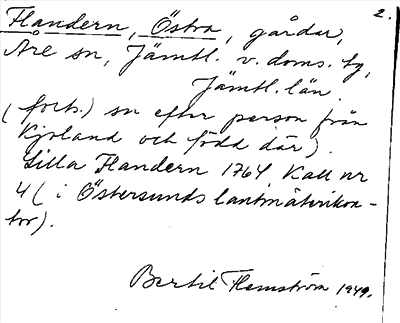 2.
Flandern, Östra, gårdar,
Åre sn, Jämtl. v. doms. tg,
Jämtl. län.
(forts.) sn efter person från
och född där).
Lilla Flandern 1764 Kall nr
4 (i Östersunds lantmäterikon-
tor).
Bertil Flemström 1949.